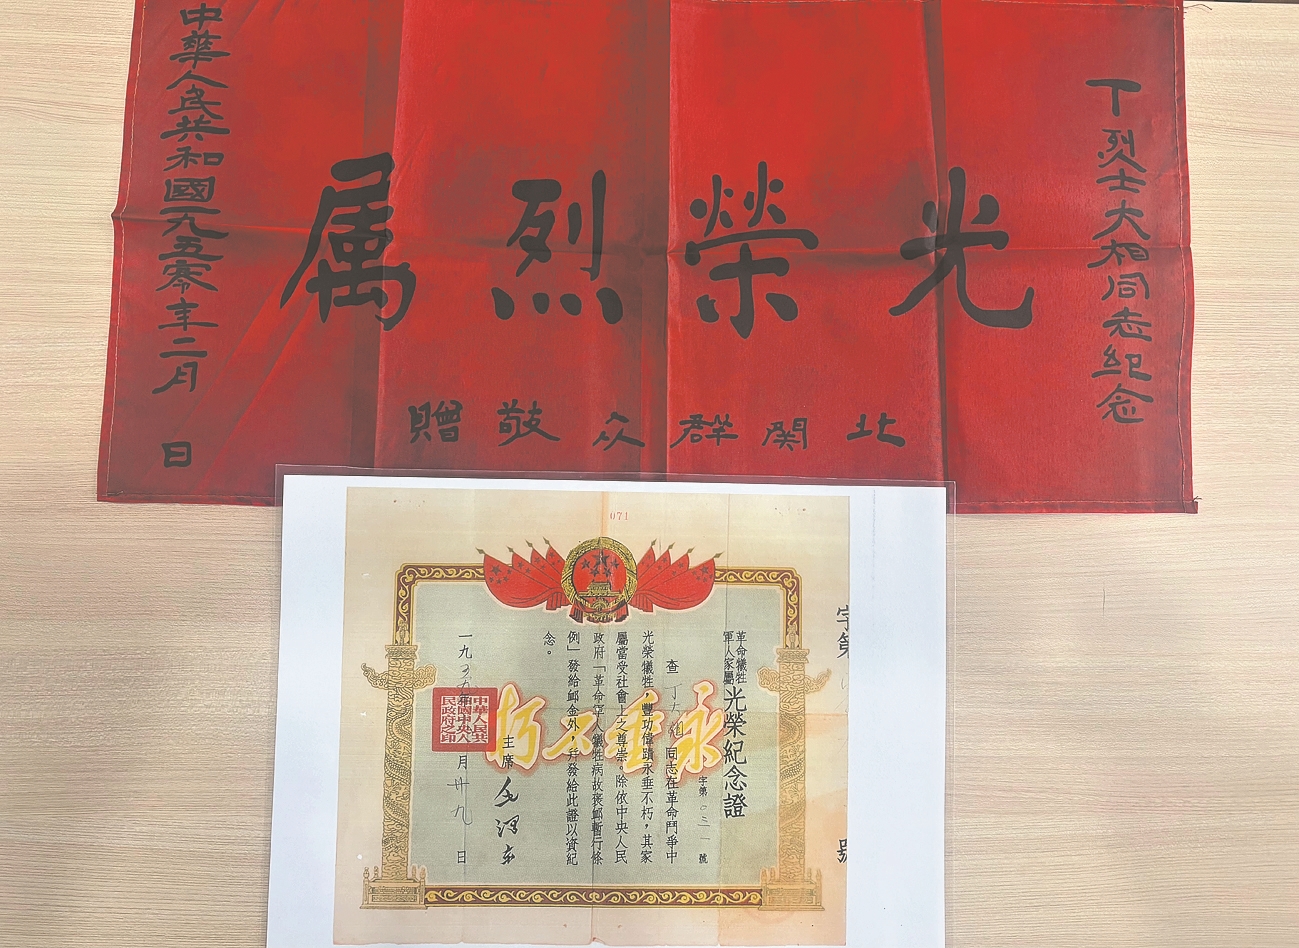 丁烈士大相同志纪念
光榮烈属
北関群众敬贈
中華人民共和國一九五零年二月 日
071
字第
號
革命犧牲
軍人家屬
光榮紀念證
字第〇三一號
查丁大相同志在革命鬥爭中
光榮犧牲,豐功偉蹟永垂不朽,其家
屬當受社會上之尊崇。除依中央人民
政府「革命軍人犧牲病故褒卹暫行條
例」發給卹金外,并發給此證以資紀
念。
永垂不朽
主席 毛澤東
一九五 年 月卅九日
中華人民共
和國中央人
民政府之印